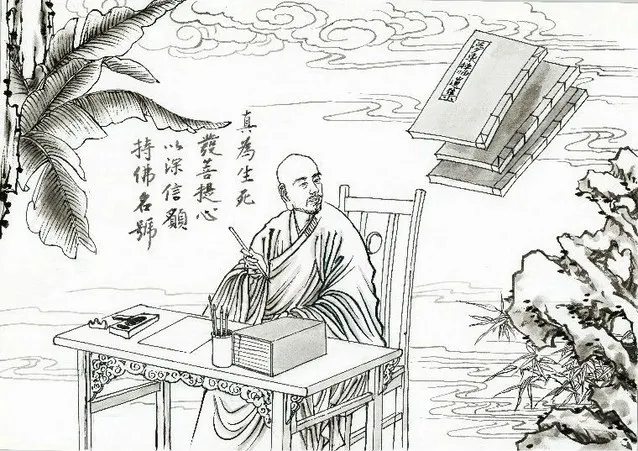 真為生死
發菩提心
以深信願
持佛名號
遺集